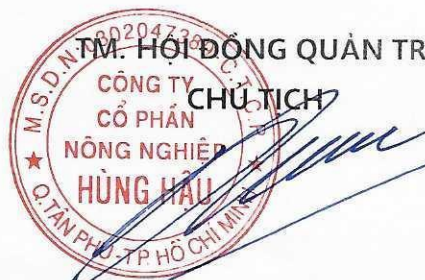 TM. HỘI ĐỒNG QUẢN TR
CHỦ TỊCH
M.S.D.N: 0302047389-C.T.C.P
CÔNG TY
CỔ PHẦN
NÔNG NGHIỆP
HÙNG HẬU
Q. TÂN PHÚ-TP. HỒ CHÍ MINH